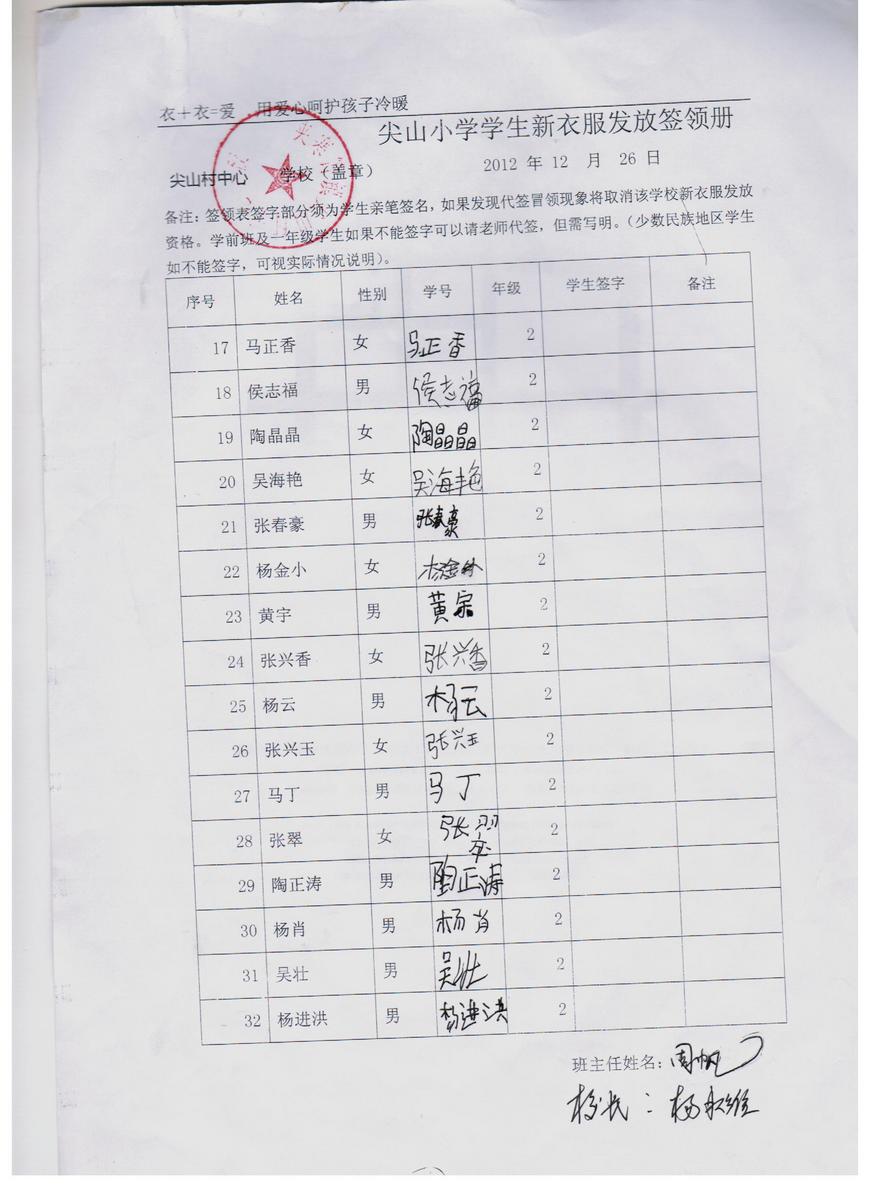 衣+衣=爱 用爱心呵护孩子冷暖
尖山小学学生新衣服发放签领册
尖山村中心 学校（盖章） 2012 年 12 月 26 日
备注：签领表签字部分须为学生亲笔签名，如果发现代签冒领现象将取消该学校新衣服发放
资格。学前班及一年级学生如果不能签字可以请老师代签，但需写明。（少数民族地区学生
如不能签字，可视实际情况说明）。
序号 姓名 性别 学号 年级 学生签字 备注
17 马正香 女 马正香 2
18 侯志福 男 侯志福 2
19 陶晶晶 女 陶晶晶 2
20 吴海艳 女 吴海艳 2
21 张春豪 男 张春豪 2
22 杨金小 女 杨金小 2
23 黄宇 男 黄宗 2
24 张兴香 女 张兴香 2
25 杨云 男 杨云 2
26 张兴玉 女 张兴玉 2
27 马丁 男 马丁 2
28 张翠 女 张翠 2
29 陶正涛 男 陶正涛 2
30 杨肖 男 杨肖 2
31 吴壮 男 吴壮 2
32 杨进洪 男 杨进洪 2
班主任姓名：周帆
校长：杨永维